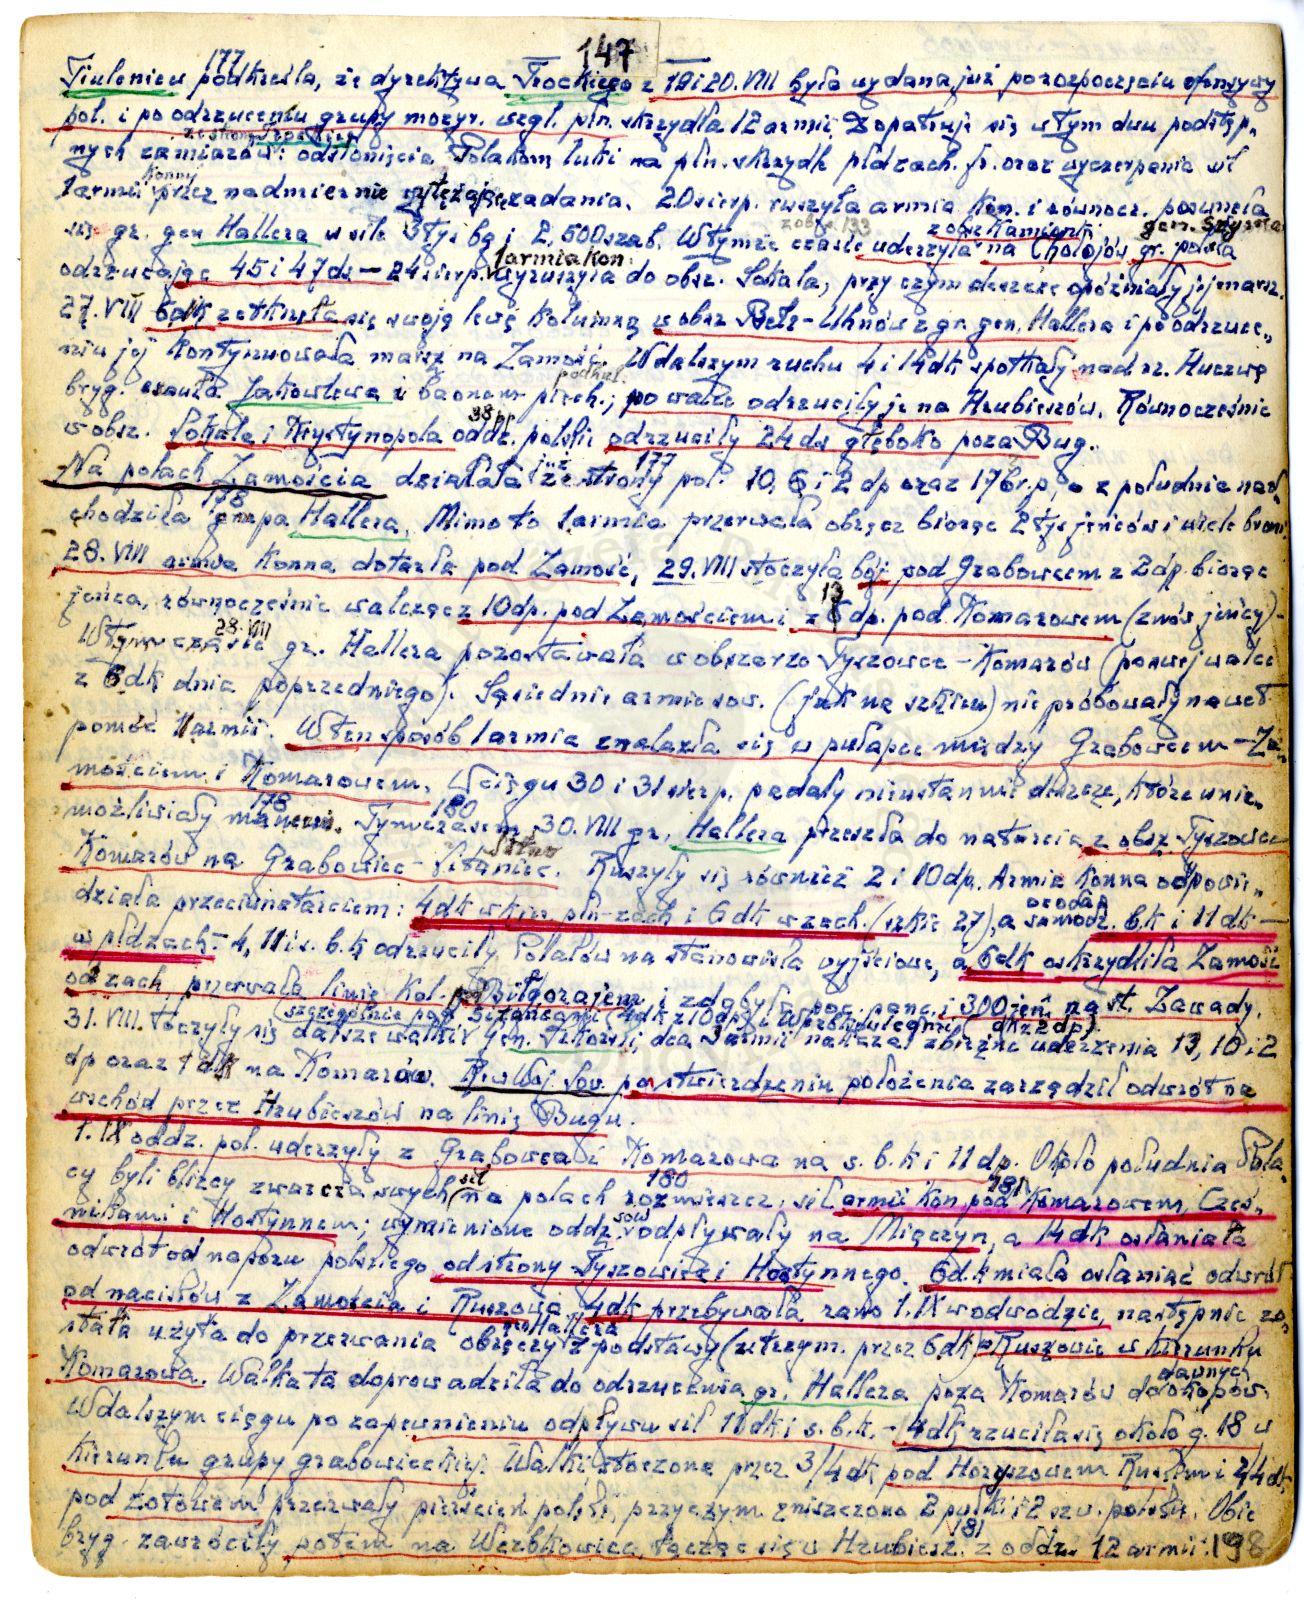 147
177
Tiuleniew podkreśla, że dyrektywa Trockiego z 19 i 20.VIII była wydana już po rozpoczęciu ofensywy
pol. i po odrzuceniu grupy mozyr. wzgl. płn. skrzydła 12 armii. Dopatruje się w tym dwu podstęp-
ze strony Trockiego
nych zamiarów: odsłonięcia Polakom luki na płn. skrzydle płdzach. fr. oraz wyczerpania sił
Konny
1 armii przez nadmiernie zadania. 20 sierp. ruszyła armia Kon. i równocz. posunęła
zob. s. 133 z obsz. Kamionki gen. Szyszka
się gr. gen Hallera w sile 3 tys bg i 2,500 szab. W tymże czasie uderzyła na Chołojów gr. polska
1 armia kon.
odrzucając 45 i 47 ds — 24 sierp. wyruszyła do obsz. Sokala, przy czym deszcze opóźniały jej marsz.
27.VIII 6 dk zetknęła się swoją lewą kolumną w obsz Bełz-Uhnów z gr. gen. Hallera i po odrzuce-
niu jej kontynuowała marsz na Zamość. W dalszym ruchu 4 i 14 dk spotkały nad rz. Huczwą
podkul.
bryg. esauła Jakowlewa i baonem piech.; po walce odrzuciły je na Hrubieszów. Równocześnie
38 pp
w obsz. Sokala i Krystynopola oddz. polskie odrzuciły 24 ds głęboko poza Bug.
już 177
Na polach Zamościa działała ze strony pol. 10, 6 i 2 dp oraz 176 r.p., a z południa nad-
178
chodziła grupa Hallera. Mimo to 1 armia przerwała obręcz biorąc 2 tys jeńców i wiele broni
28.VIII armia Konna dotarła pod Zamość, 29.VIII stoczyła bój pod Grabowcem z 2 dp. biorąc
13
jeńca, równocześnie walcząc z 10 dp. pod Zamościem i z dp. pod Komarowem (znów jeńcy) -
28.VIII
W tym czasie gr. Hallera pozostawała w obszarze Tyszowce - Komarów (po swej walce
z 6 dk dnia poprzedniego). Sąsiednie armie sow. (jak na szkicu) nie próbowały nawet
pomóc 1 armii. W ten sposób 1 armia znalazła się w pułapce między Grabowcem - Za-
mościem i Komarowem. W ciągu 30 i 31 sierp. padały nieustanni deszcze, które unie-
178 180
możliwiały manewr. Tymczasem 30.VIII gr. Hallera przeszła do natarcia z obsz. Tyszowce
Sitno
Komarów na Grabowiec - Sitaniec. Ruszyły się również 2 i 10 dp. Armia Konna odpowie-
działa przeciwnatarciem: 4 dk w kier. płn-zach i 6 dk w zach. (szkic 27), a samodz. b.k i 11 dk —
w płdzach. - 4, 11 i s. b. k odrzuciły Polaków na stanowiska wyjściowe, a 6 dk oskrzydliła Zamość
od zach, przerwała linię kol. Biłgorajem i zdobyła poc. panc. i 300 jeń na st. Zawady.
(szczególnie pod Sitańcami (4 dk z 10 dp) i Werbkowicami (dk z 2 dp)
31.VIII. toczyły się dalsze walki gen. Sikorski, dca 3 armii nakazał zbieżne uderzenia 13, 10 i 2
dp oraz 1 dk na Komarów. Rew Woj. Sow. po stwierdzeniu położenia zarządził odwrót na
wschód przez Hrubieszów na linię Bugu.
1.IX oddz. pol. uderzyły z Grabowca i Komarowa na s. b. k i 11 dp. Około południa Pola-
sił 180 181
cy byli bliscy zwarcia swych na polach rozmieszcz. sił armii Kon pod Komarowem, Cześ-
sow
nikami i Hostynnem; wymienione oddz. odpływały na Miączyn, a 14 dk osłaniała
odwrót od naporu polskiego od strony Tyszowiec i Hostynnego. 6 dk miała osłaniać odwrót
od nacisków z Zamościa i Ruszowa. 4 dk przebywała rano 1.IX w odwodzie, następnie zo-
gen Hallera
stała użyta do przerwania obręczy z podstawy (zatrzym. przez 6 dk) Ruszowie w kierunku
dawnych
Komarowa. Walka ta doprowadziła do odrzucenia gr. Hallera poza Komarów do okopów.
W dalszym ciągu po zapewnieniu odpływu sił 11 dk i s. b. k. - 4 dk rzuciła się około g. 18 w
kierunku grupy grabowieckiej. Walki stoczone przez 3/4 dk pod Horyszowem Ruskim i 2/4 dk
pod Żołowem przerwały pierścień polski, przyczym zniszczono 2 pułki i 2 szw. polskie. Obie
181
bryg. zawróciły potem na Werbkowice, łącząc się w Hrubiesz. z oddz. 12 armii.
198